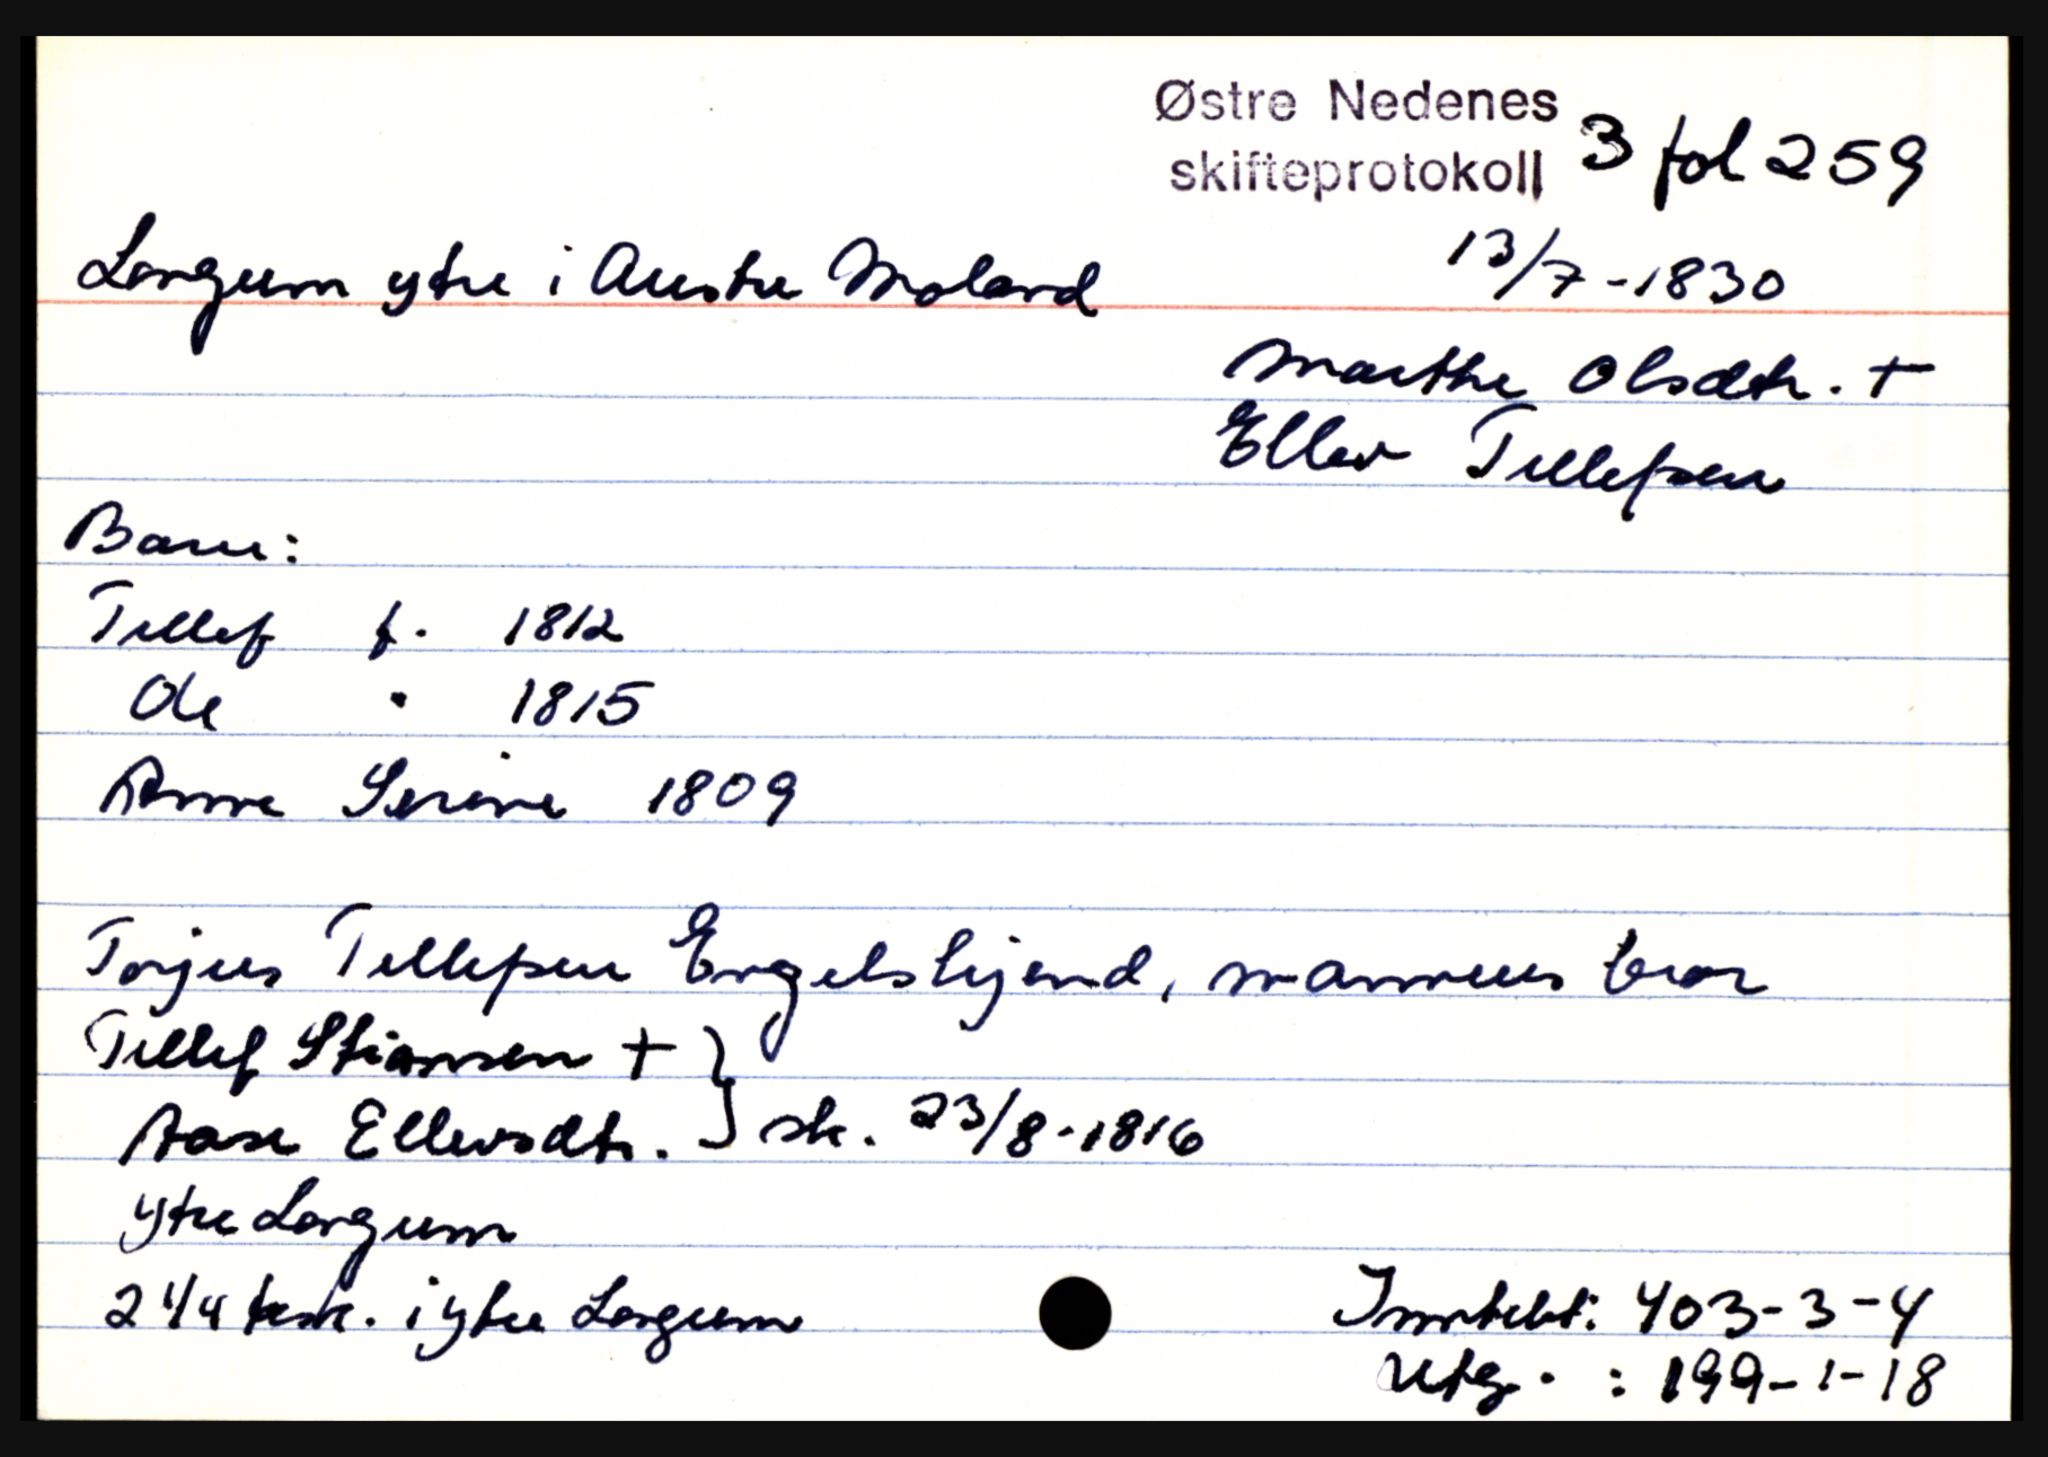 Østre Nedenes
skifteprotokoll 3 fol 259
Longum ytre i Austre Moland 13/7-1830
Marthe Olsdtr. +
Ellev Tellefsen
Barn:
Tellef f. 1812
Ole " 1815
Anne Serine 1809
Torjus Tellefsen Engelshjend, mannens bror
Tellef Stiansen + }
Aase Ellevsdtr. } sk. 23/8-1816
ytre Longum
2 1/4 i ytre Longum
Inntekt: 403-3-4
Utg. : 199-1-18